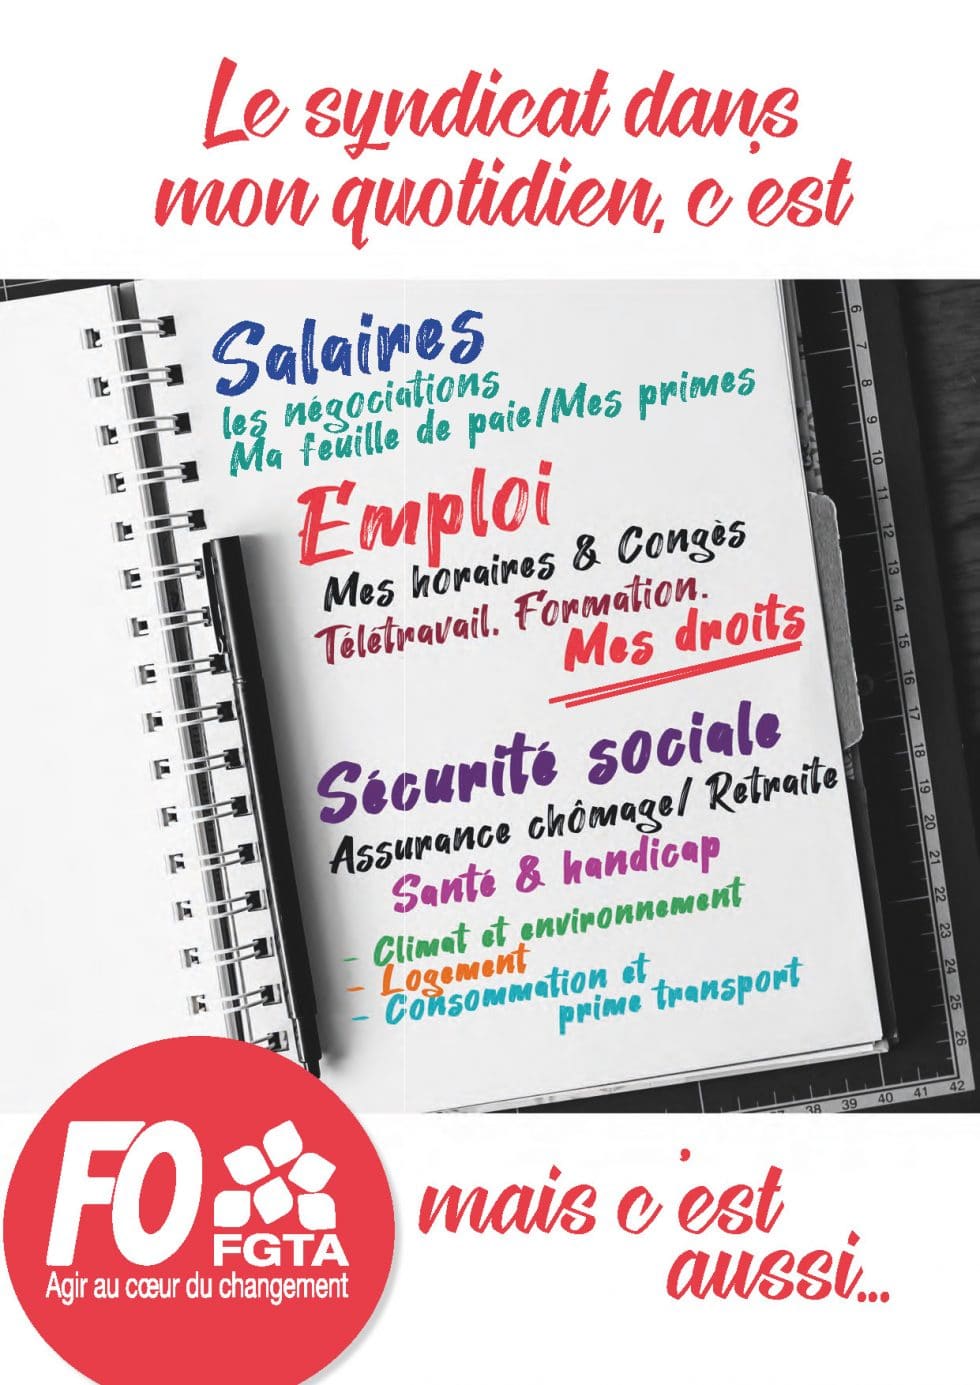 Le syndicat dans
mon quotidien, c'est
Salaires
les négociations
Ma feuille de paie/Mes primes
Emploi
Mes horaires & Congès
Télétravail. Formation.
Mes droits
Sécurité sociale
Assurance chômage/ Retraite
Santé & handicap
- Climat et environnement
- Logement
- Consommation et
prime transport
6
7
8
9
10
11
12
13
14
15
16
17
18
19
20
21
22
23
24
25
26
38 39 40 41 42
FO
FGTA
Agir au cœur du changement
mais c'est
aussi...